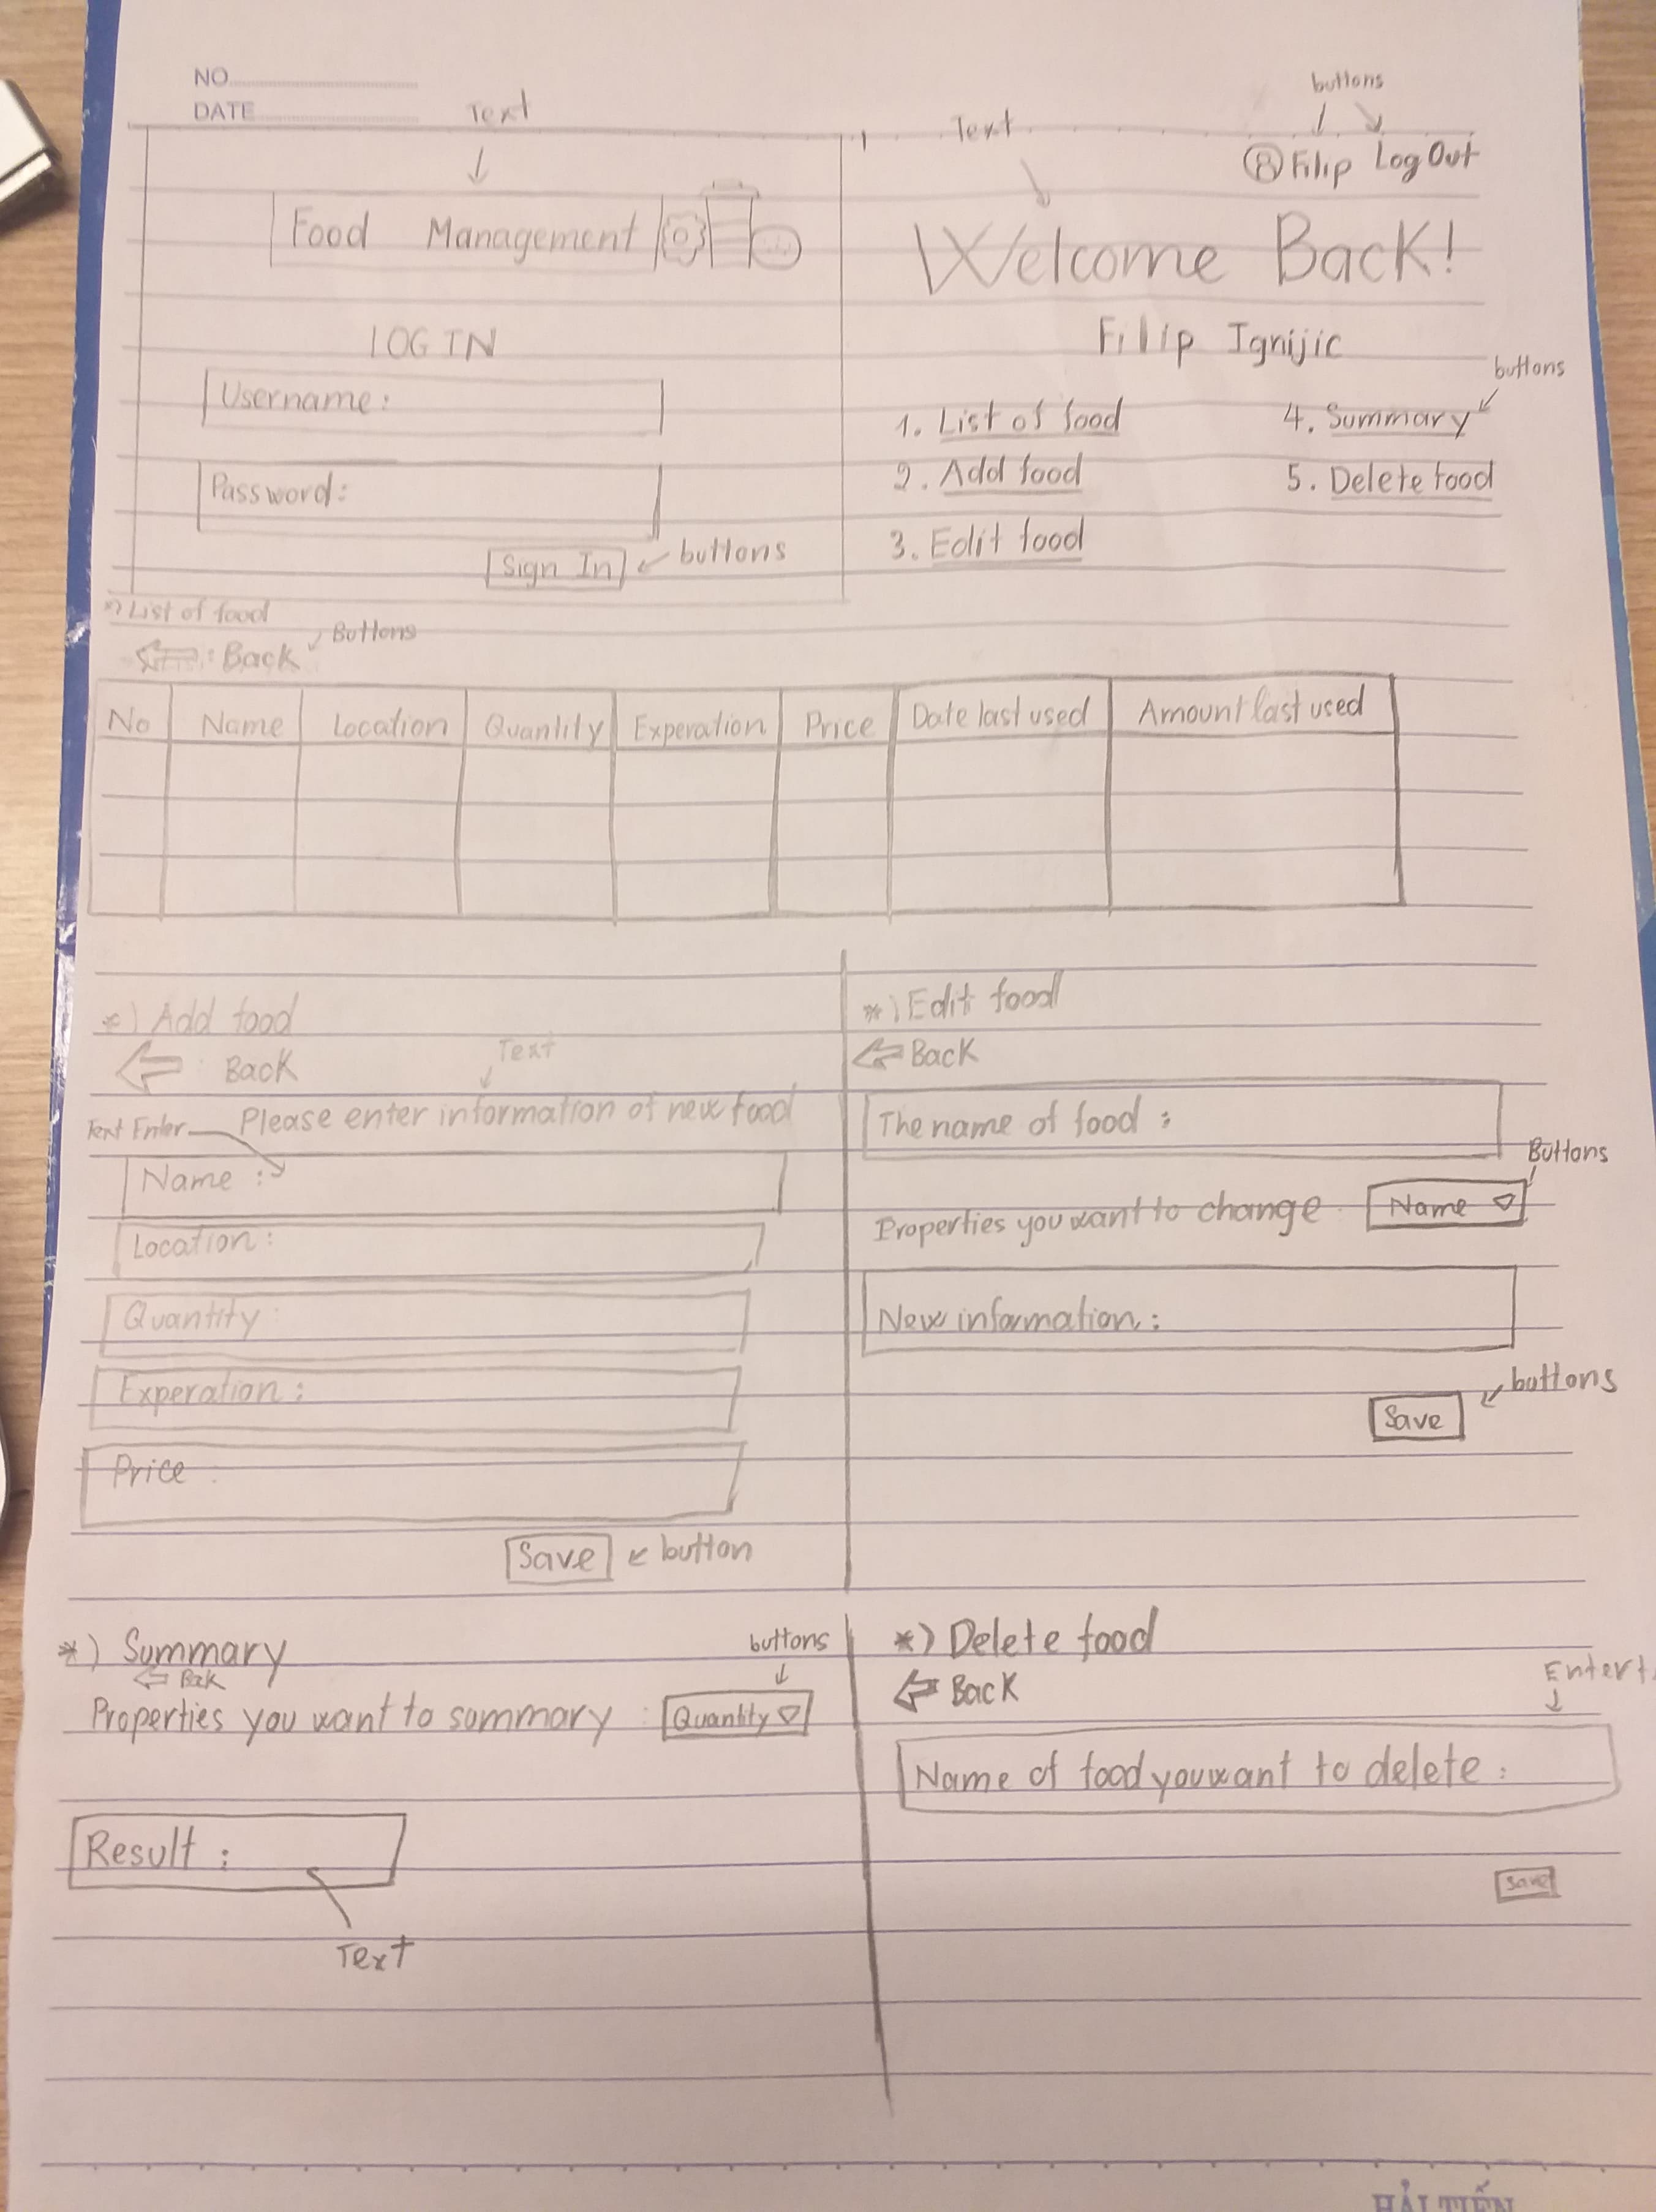 NO
DATE
Text
Food Management
LOG IN
Username:
Password:
Sign In
buttons
buttons
Text
Filip Log Out
Welcome Back!
Filip Ignijic
buttons
1. List of food
4. Summary
2. Add food
5. Delete food
3. Edit food
*) List of food
: Back
Buttons
No Name Location Quantity Experation Price Date last used Amount last used
*) Add food
: Back
Text
Please enter information of new food
Text Enter
Name :
Location:
Quantity :
Experation :
Price :
Save
button
*) Edit food
Back
The name of food :
Buttons
Properties you want to change : Name
New information :
buttons
Save
*) Summary
Back
buttons
Properties you want to summary : Quantity
Result :
Text
*) Delete food
Back
Name of food you want to delete :
Save
HẢI TIẾN